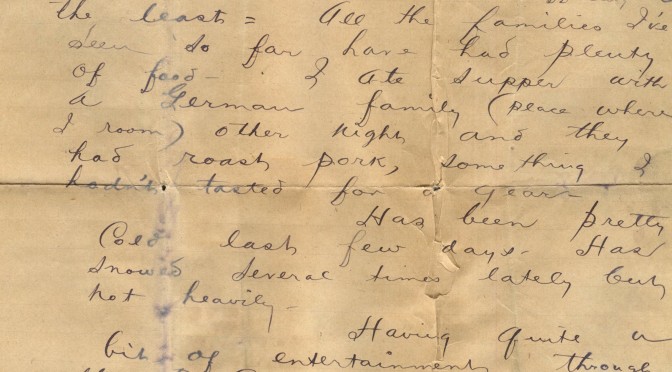 the least = All the families I've
seen so far have had plenty
of food - I ate supper with
a German family (place where
I room) other night and they
had roast pork, something I
hadn't tasted for a year -
Has been pretty
cold last few days - Has
snowed several times lately but
not heavily -
Having quite a
bit of entertainment through